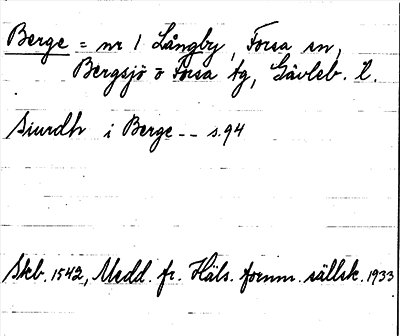 Berge = nr 1 Långby, Forsa sn,
Bergsjö o Forsa tg, Gävleb. l.
Siurdh i Berge -- s. 94
Skb. 1542, Medd. fr. Häls. fornm. sällsk. 1933